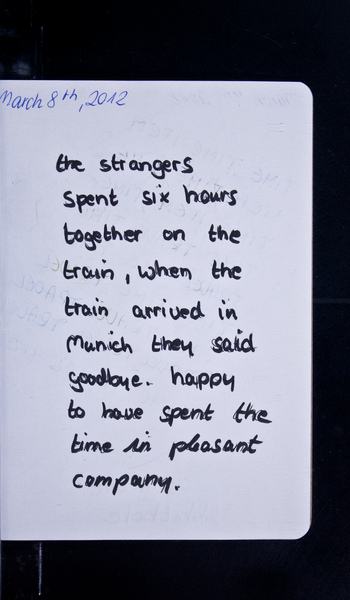 March 8th, 2012
the strangers
spent six hours
together on the
train, when the
train arrived in
Munich they said
goodbye. happy
to have spent the
time in pleasant
company.